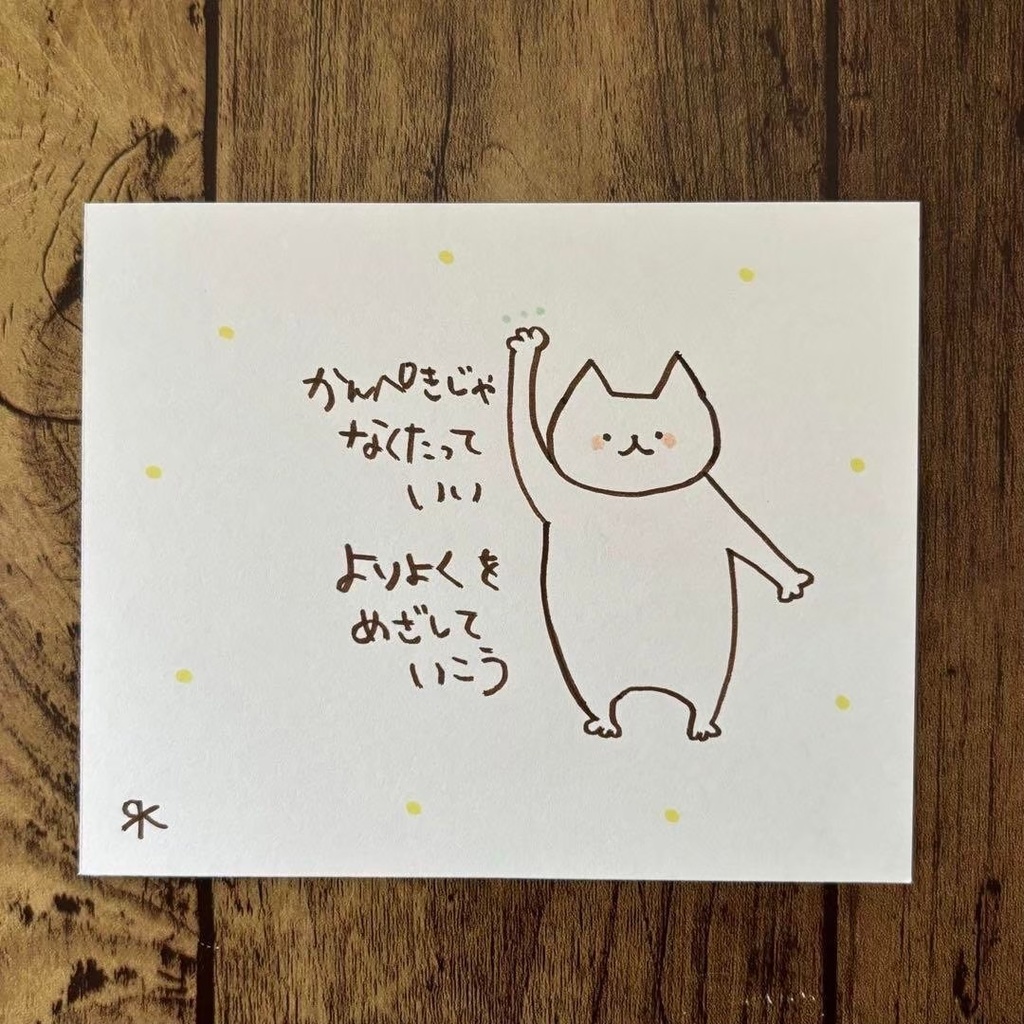 かんぺきじゃ
なくたって
いい
よりよくを
めざして
いこう